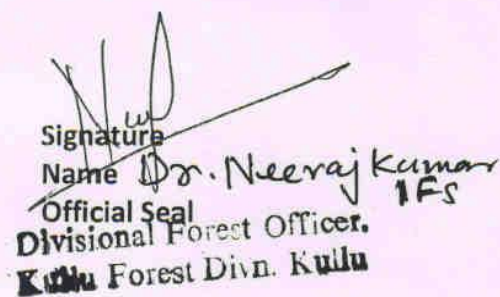 Signature
Name Dr. Neeraj Kumar
IFS
Official Seal
Divisional Forest Officer.
Kullu Forest Divn. Kullu